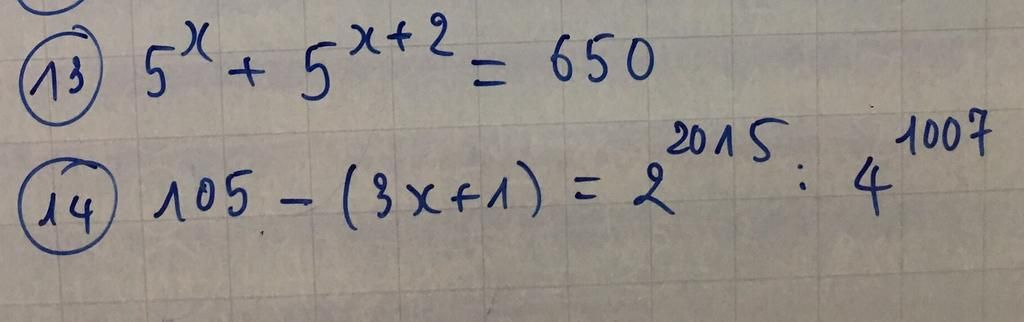 13 5^x + 5^{x+2} = 650
14 105 - (3x+1) = 2^{2015} : 4^{1007}